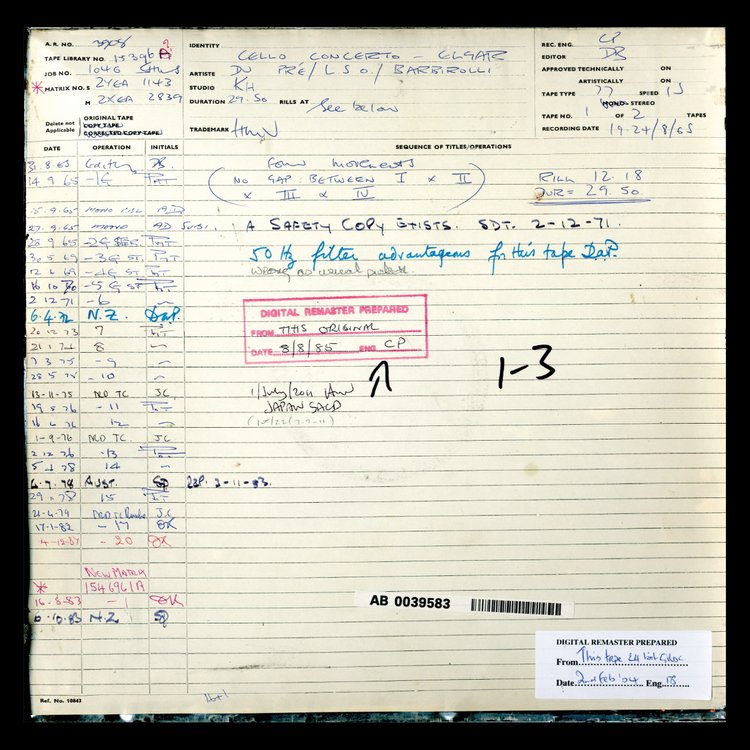 A.R. NO. 3908
TAPE LIBRARY NO. 15396
JOB NO. 1046
MATRIX NO. S 2YEA 1143
M 2XEA 2839
Delete not Applicable
ORIGINAL TAPE
COPY TAPE
CORRECTED COPY TAPE
IDENTITY CELLO CONCERTO - ELGAR
ARTISTE DU PRÉ / L.S.O. / BARBIROLLI
STUDIO KH
DURATION 29.50 RILLS AT See below
TRADEMARK HMV
REC. ENG. CP
EDITOR DB
APPROVED TECHNICALLY ON
ARTISTICALLY ON
TAPE TYPE 77 SPEED 15
MONO - STEREO
TAPE NO. 1 OF 2 TAPES
RECORDING DATE 19-24/8/65
DATE OPERATION INITIALS SEQUENCE OF TITLES/OPERATIONS
31.8.65 Editing DB.
FOUR MOVEMENTS
(NO GAP BETWEEN I & II
& III & IV)
RILL 12.18
DUR = 29.50
14 9 65
15.9.65 MONO AD
27.9.65 MONO AD
A SAFETY COPY EXISTS. SDT. 2-12-71.
28 9 65
50 Hz filter advantageous for this tape D.a.P.
30 5 69
12 6 69
16 10 70
2 12 71 -6
6.4.72 N.Z. D.a.P.
20 12 73 7
21 1 74 8
7 3 75 -9
28 5 75 -10
13-11-75 TC J.C.
19 5 76 -11
16 6 76 12
1-9-76 TC. J.C.
2 12 76 -13
5 1 78 14
6.7.78 AUST.
2-11-83.
29.11.78 15
21-4-79 J.C.
17-1-82 -17
-20
NEW MATRIX
1546961A
16-8-83 -1
6-10-83 N.Z.
DIGITAL REMASTER PREPARED
FROM THIS ORIGINAL
DATE 8/8/85 ENG CP
1-3
1/July/2011
JAPAN SACD
AB 0039583
DIGITAL REMASTER PREPARED
From This tape 24 bit
Date 2nd Feb '04 Eng.
Ref. No. 10843